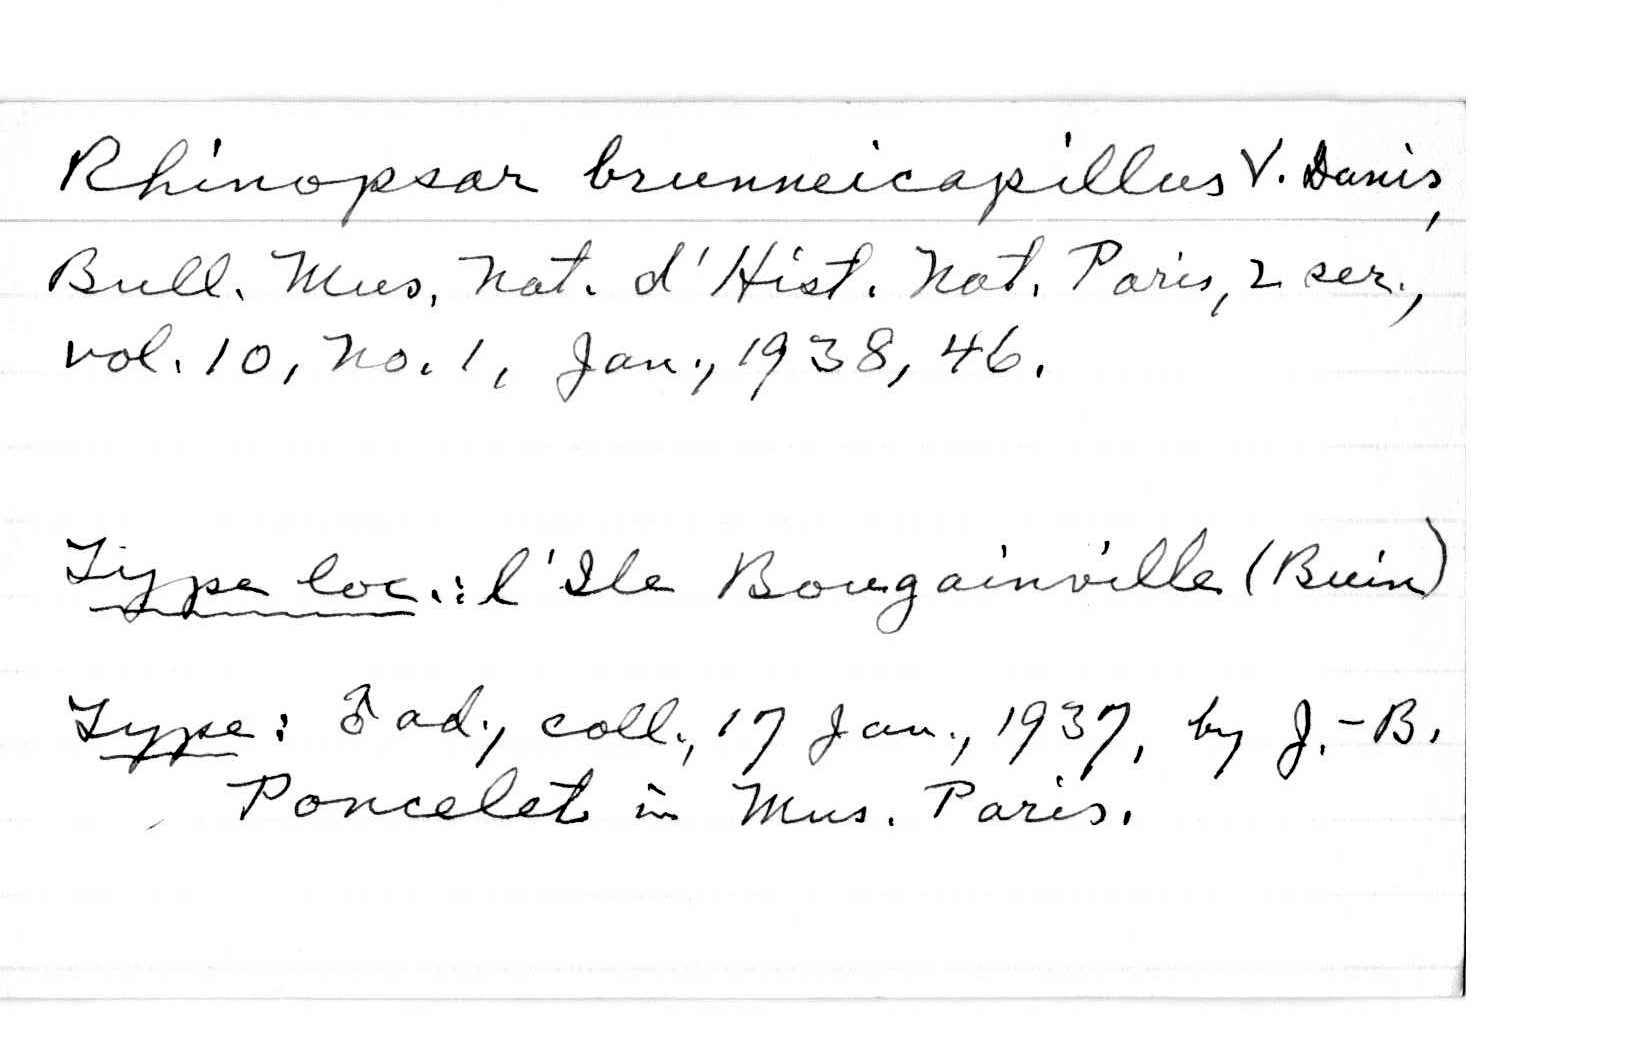 Rhinopsar brunneicapillus V. Danis,
Bull. Mus. Nat. d'Hist. Nat. Paris, 2 ser.,
vol. 10, No. 1, Jan., 1938, 46.
Type loc.: l'Ile Bougainville (Buin)
Type: ♂ ad., coll., 17 Jan., 1937, by J.-B.
Poncelet in Mus. Paris.